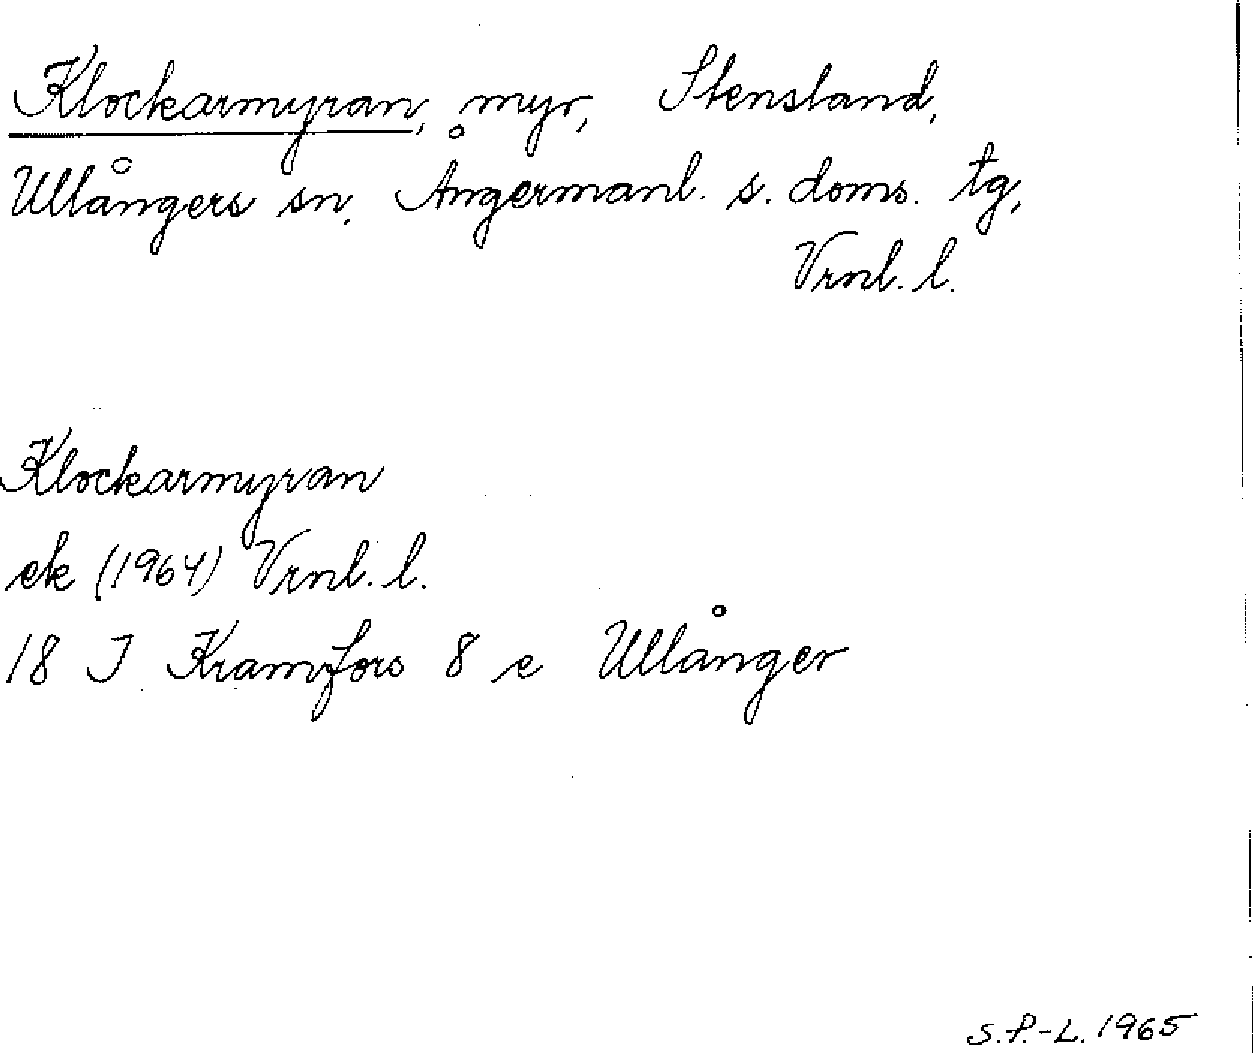 Klockarmyran, myr, Stensland,
Ullångers sn. Ångermanl. s. doms. tg,
Vrnl. l.
Klockarmyran
ek (1964) Vrnl. l.
18 J Kramfors 8 e Ullånger
S.P.-L. 1965